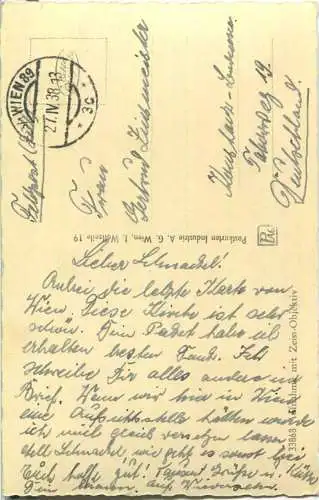 WIEN 89
27.IV.38.-13
* 3c *
Feldpost
Frau
Gertrud
Fahrweg 19.
Deutschland.
Postkarten Industrie A. G. Wien, I. Wollzeile 19
PAG
Lieber Schnackel!
Anbei die letzte Karte von
Wien. Diese Kirche ist sehr
schön. Dein Paket habe ich
erhalten besten Dank. Ich
schreibe Dir alles andere im
Brief. Wenn wir hier in Wien
eine hätten würde
ich mich gleich versetzen lassen
Schnackel, wie geht es sonst
Euch hoffe gut! Tausend Grüße u. Küsse
Dein
aus Wien
mit Zeiss-Objektiv